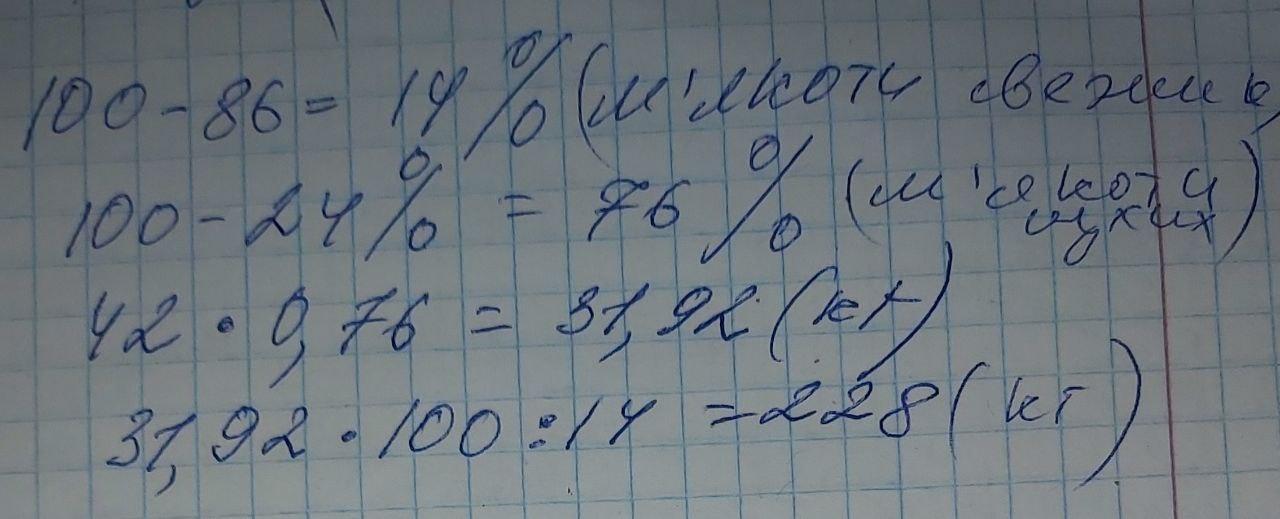 100 - 86 = 14 % (м'якоти свежих
100 - 24 % = 76 % (м'якоти
сухих)
42 · 0,76 = 31,92 (кг)
31,92 · 100 : 14 = 228 (кг)